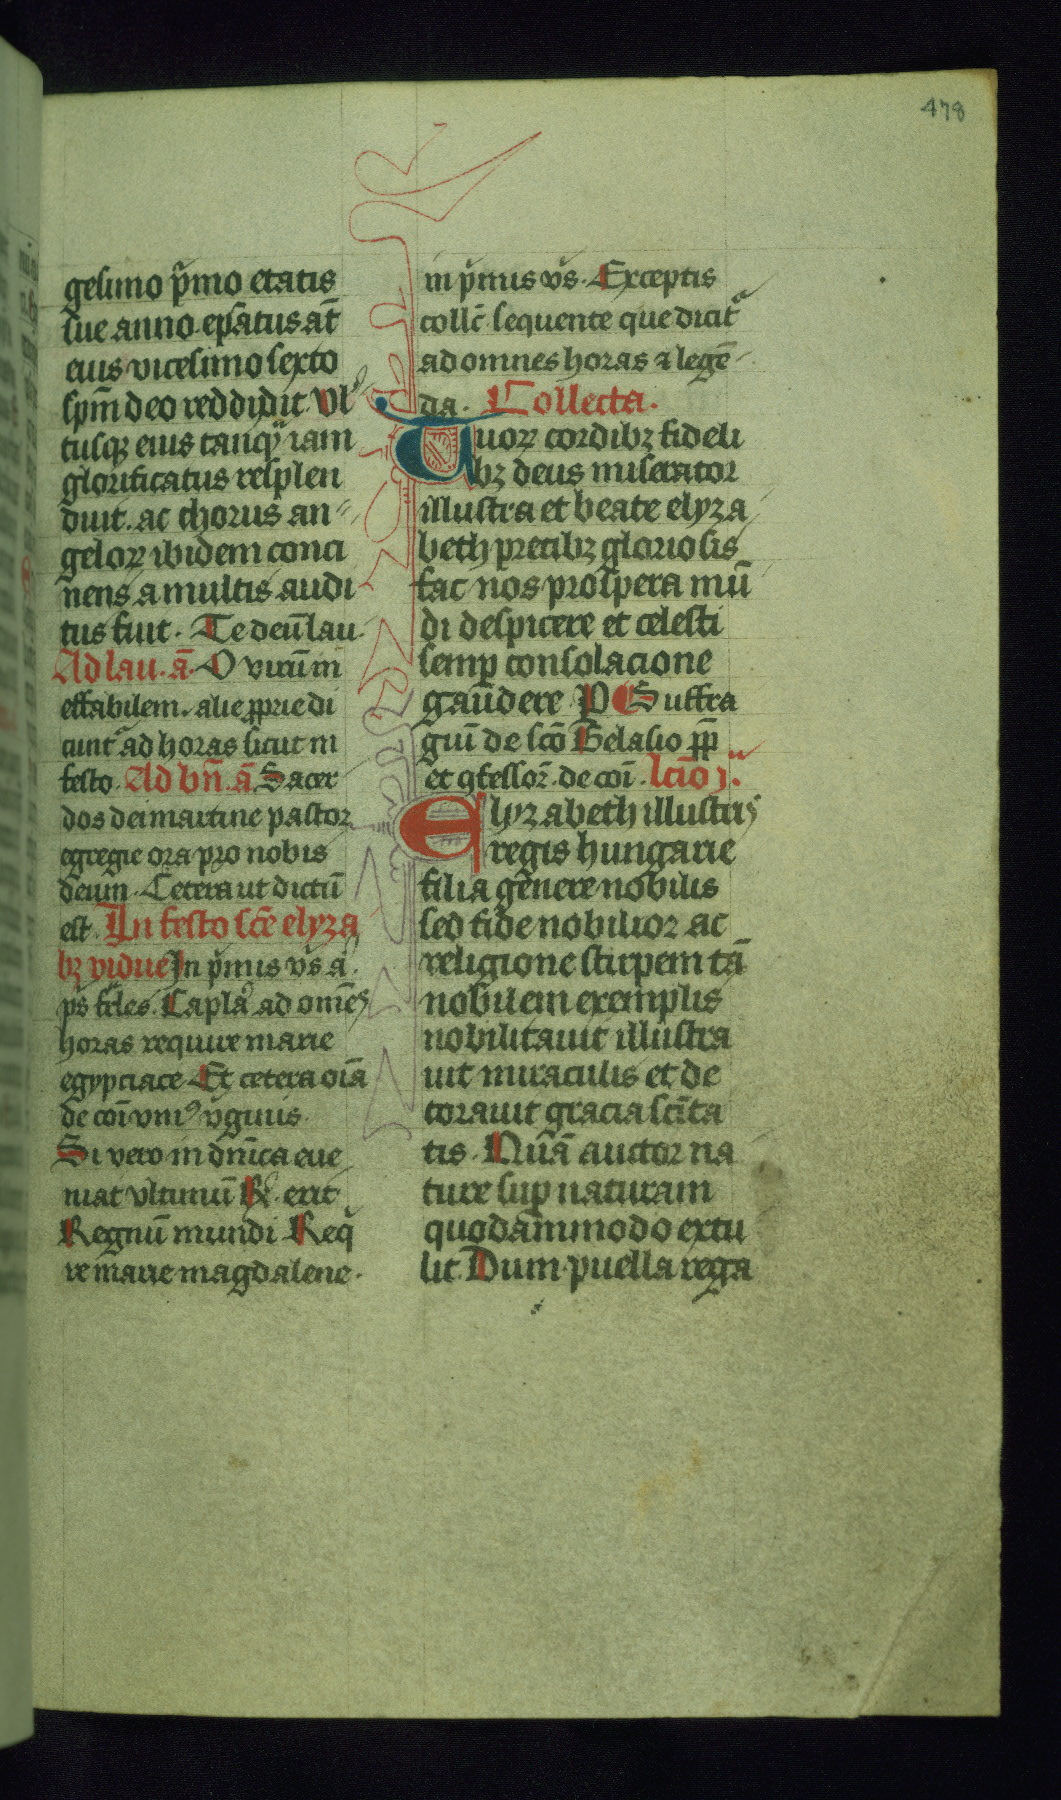 478
gesimo pͥmo etatis
sue anno. ep̄atus aūt
eius vicesimo sexto
sp̄m deo reddidit. Vl
tusqꝫ eius tanqͣ iam
glorificatus resplen
duit. ac chorus an
gelorꝝ ibidem conci
nens a multis audi
tus fuit. Te deū lau
Ad lau. añ. O virum in
effabilem. alie ꝓprie di
cunt͛ ad horas sicut in
festo. Ad bn̄. añ. Sacer
dos dei martine pastor
egregie ora pro nobis
deum. Cetera ut dictū
est. In festo sc̄e elyza
bꝫ vidue In pͥmis vs̄ añ.
ps̄ feͥles. Capla ad om̄es
horas require marie
egypciace. Et cetera oīa
de coī vniꝰ vͥginis
Si vero in dn̄ica eue
niat vltimū ℟. erit
Regnū mundi. Reqͥ
re marie magdalene.
in pͥmis vs̄. Exceptis
coll̄c sequente que dicit͛
ad omnes horas ⁊ legē
da. Collecta.
Tuorꝝ cordibꝫ fideli
bꝫ deus miserator
illustra et beate elyza
beth precibꝫ gloriosis
fac nos prospera mū
di despicere et celesti
semꝑ consolacione
gaudere. P Suffra
giū de sc̄o Gelasio pp̄
et ꝯfessor̄. de coī. lc̄io j.ͣ
Elyzabeth illustris
regis hungarie
filia genere nobilis
sed fide nobilior ac
religione stirpem tā
nobilem exemplis
nobilitauit illustra
uit miraculis et de
corauit gracia sc̄ita
tis. Nuā auctor na
ture suꝑ naturam
quodammodo extu
lit. Dum puella rega